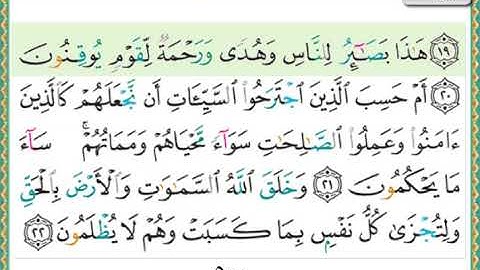 ﴿١٩﴾ هَٰذَا بَصَـٰٓئِرُ لِلنَّاسِ وَهُدًى وَرَحْمَةٌ لِّقَوْمٍ يُوقِنُونَ
﴿٢٠﴾ أَمْ حَسِبَ الَّذِينَ اجْتَرَحُوا السَّيِّـَٔاتِ أَن نَّجْعَلَهُمْ كَالَّذِينَ
ءَامَنُوا وَعَمِلُوا الصَّـٰلِحَـٰتِ سَوَآءً مَّحْيَاهُمْ وَمَمَاتُهُمْ ۚ سَآءَ
مَا يَحْكُمُونَ ﴿٢١﴾ وَخَلَقَ اللَّهُ السَّمَـٰوَٰتِ وَالْأَرْضَ بِالْحَقِّ
وَلِتُجْزَىٰ كُلُّ نَفْسٍۭ بِمَا كَسَبَتْ وَهُمْ لَا يُظْلَمُونَ ﴿٢٢﴾